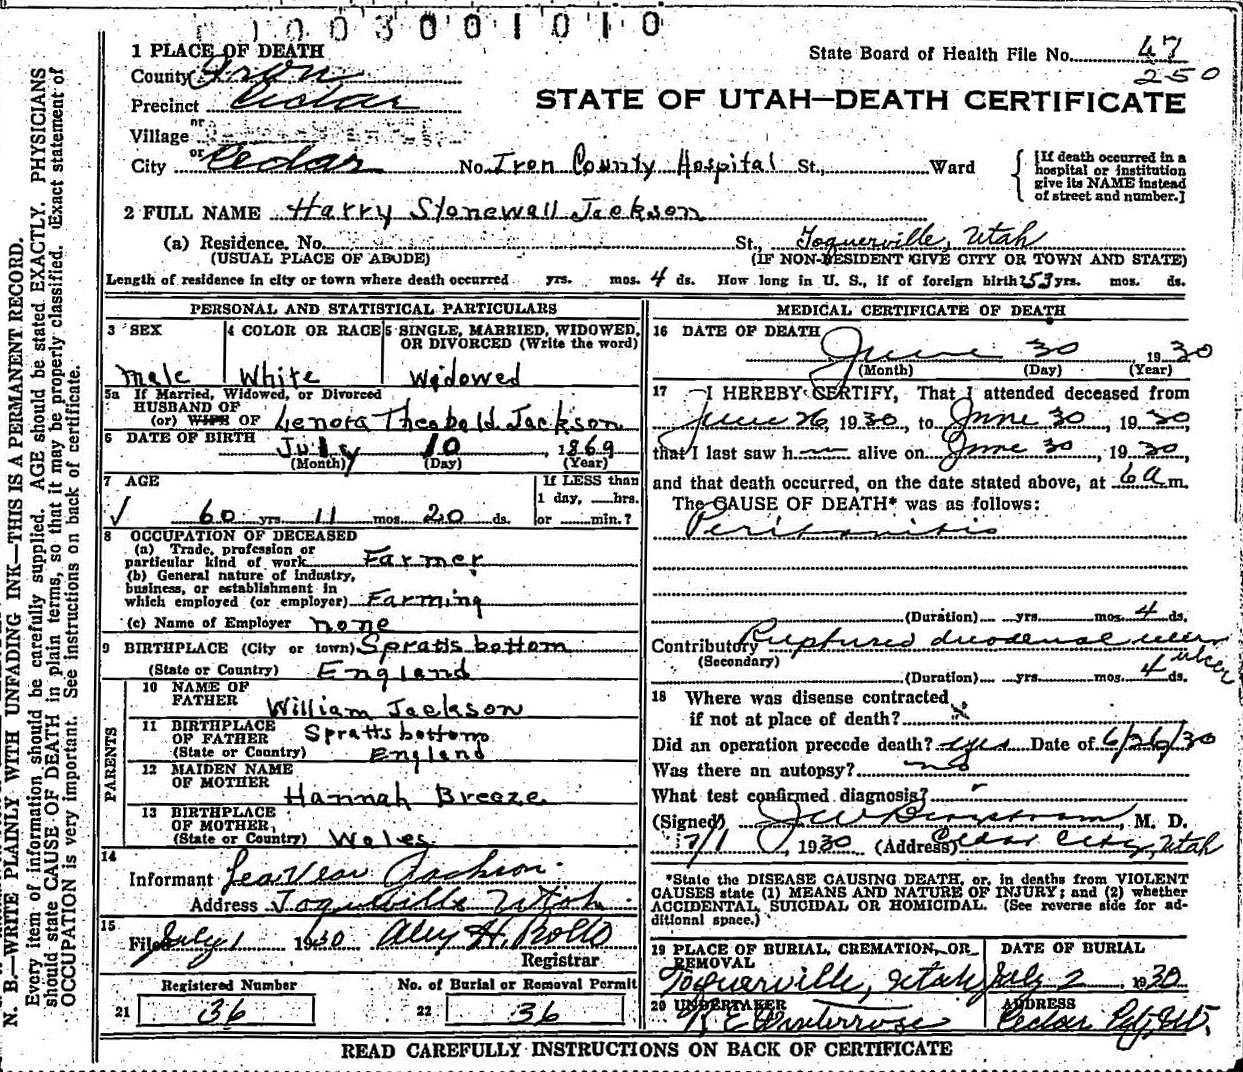 1003001010
1 PLACE OF DEATH
State Board of Health File No. 47
250
County Iron
Precinct Cedar
STATE OF UTAH—DEATH CERTIFICATE
or
Village
or
City Cedar No. Iron County Hospital St., Ward
[If death occurred in a
hospital or institution
give its NAME instead
of street and number.]
2 FULL NAME Harry Stonewall Jackson
(a) Residence. No. St., Toquerville, Utah
(USUAL PLACE OF ABODE) (IF NON-RESIDENT GIVE CITY OR TOWN AND STATE)
Length of residence in city or town where death occurred yrs. mos. 4 ds. How long in U. S., if of foreign birth? 53 yrs. mos. ds.
PERSONAL AND STATISTICAL PARTICULARS
3 SEX
Male
4 COLOR OR RACE
White
5 SINGLE, MARRIED, WIDOWED,
OR DIVORCED (Write the word)
Widowed
5a If Married, Widowed, or Divorced
HUSBAND OF
(or) WIFE OF Lenora Theobald Jackson
6 DATE OF BIRTH
July 10, 1869
(Month) (Day) (Year)
7 AGE
60 yrs. 11 mos. 20 ds.
If LESS than
1 day, hrs.
or min.?
8 OCCUPATION OF DECEASED
(a) Trade, profession or
particular kind of work Farmer
(b) General nature of industry,
business, or establishment in
which employed (or employer) Farming
(c) Name of Employer none
9 BIRTHPLACE (City or town) Spratts bottom
(State or Country) England
PARENTS
10 NAME OF
FATHER William Jackson
11 BIRTHPLACE
OF FATHER Spratts bottom
(State or Country) England
12 MAIDEN NAME
OF MOTHER Hannah Breeze
13 BIRTHPLACE
OF MOTHER,
(State or Country) Wales
14
Informant LeaVear Jackson
Address Toquerville Utah
15
Filed July 1 1930 Alex H. Rollo
Registrar
Registered Number No. of Burial or Removal Permit
21 36 22 36
MEDICAL CERTIFICATE OF DEATH
16 DATE OF DEATH
June 30, 1930
(Month) (Day) (Year)
17 I HEREBY CERTIFY, That I attended deceased from
June 26, 1930, to June 30, 1930
that I last saw h alive on June 30, 1930,
and that death occurred, on the date stated above, at 6 a m.
The CAUSE OF DEATH* was as follows:
Peritonitis
(Duration) yrs. mos. 4 ds.
Contributory Ruptured duodenal ulcer
(Secondary) ulcer
(Duration) yrs. mos. 4 ds.
18 Where was disease contracted
if not at place of death?
Did an operation precede death? yes Date of 6/26/30
Was there an autopsy? no
What test confirmed diagnosis?
(Signed) M. D.
7/1, 1930 (Address) Cedar City, Utah
*State the DISEASE CAUSING DEATH, or, in deaths from VIOLENT
CAUSES state (1) MEANS AND NATURE OF INJURY; and (2) whether
ACCIDENTAL, SUICIDAL OR HOMICIDAL. (See reverse side for ad-
ditional space.)
19 PLACE OF BURIAL, CREMATION, OR
REMOVAL
Toquerville, Utah
DATE OF BURIAL
July 2 1930
20 UNDERTAKER
R E Winterrose
ADDRESS
Cedar City, Ut.
READ CAREFULLY INSTRUCTIONS ON BACK OF CERTIFICATE
N. B.—WRITE PLAINLY WITH UNFADING INK—THIS IS A PERMANENT RECORD.
Every item of information should be carefully supplied. AGE should be stated EXACTLY. PHYSICIANS
should state CAUSE OF DEATH in plain terms, so that it may be properly classified. Exact statement of
OCCUPATION is very important. See instructions on back of certificate.